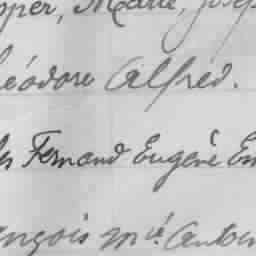 pper, Marie, Josep
héodore Alfred.
les Fernand Eugène Em
ançois Mie. Anton